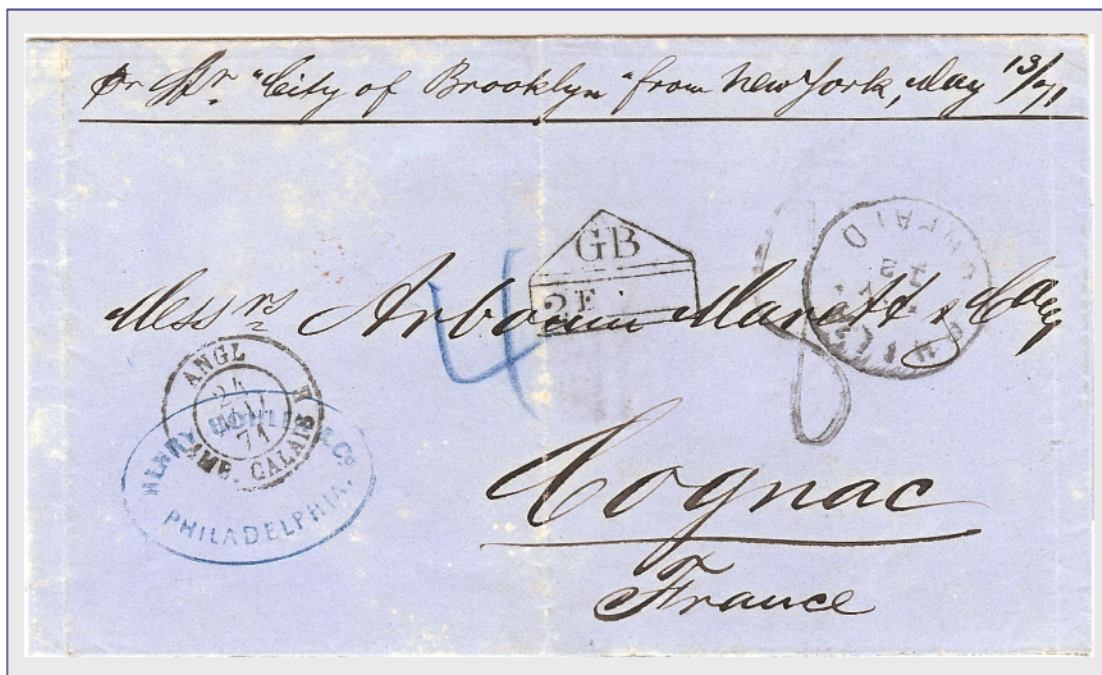 pr Str. "City of Brooklyn" from New York, May 13/71
GB
2F
4
Messrs Arbouin Marett & Co
UNPAID
ANGL
24
MAI
71
AMB. CALAIS H
HENRY & Co
PHILADELPHIA.
8
Cognac
France